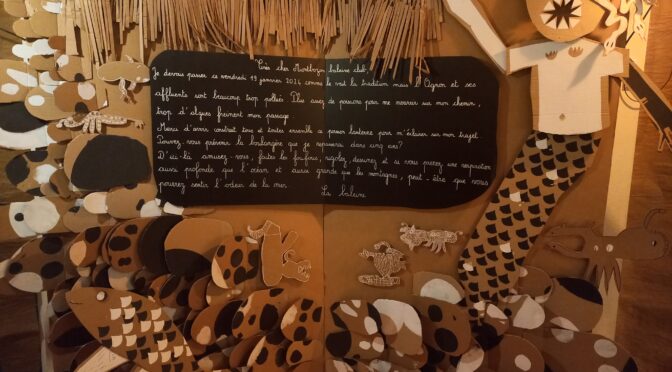 Très cher Montbozon baleine club,
Je devais passer ce vendredi 19 janvier 2024 comme le veut la tradition mais l'Ognon et ses
affluents sont beaucoup trop pollués. Plus assez de poissons pour me nourrir sur mon chemin,
trop d'algues freinent mon passage.
Merci d'avoir construit tous et toutes ensemble ce poisson lanterne pour m'éclairer sur mon trajet.
Pouvez-vous prévenir la boulangère que je repasserai dans cinq ans?
D'ici-là amusez-vous, faites les fanfarons, rigolez, dessinez et si vous prenez une respiration
aussi profonde que l'océan et aussi grande que les montagnes, peut-être que vous
pourrez sentir l'odeur de la mer.
La baleine